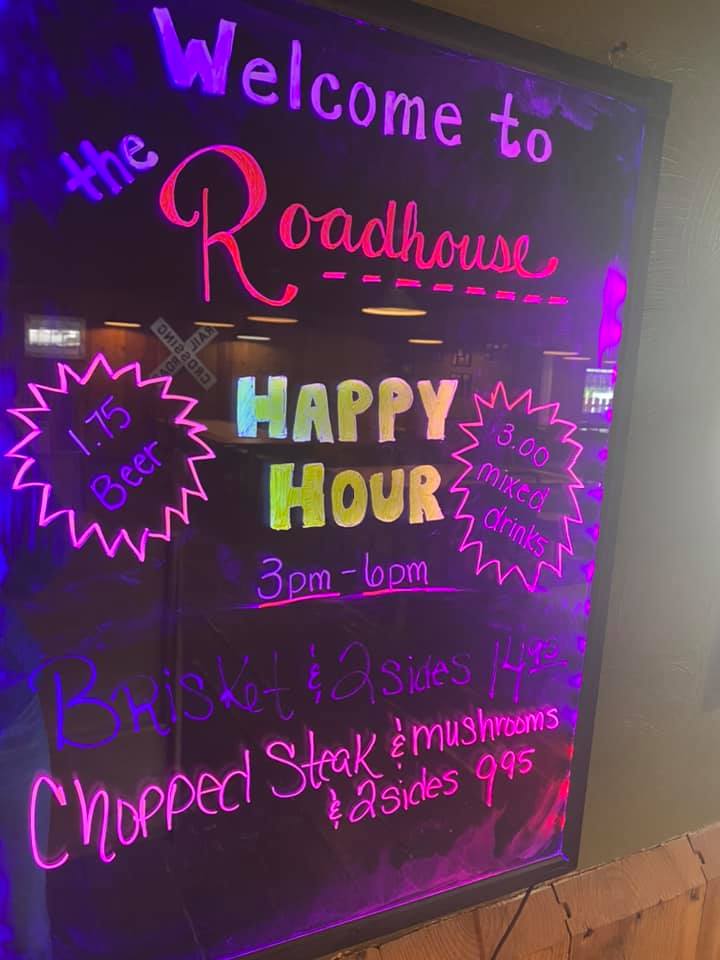 Welcome to
the
Roadhouse
RAIL CROSSING ROAD
HAPPY
HOUR
1.75
Beer
3.00
mixed
drinks
3pm - 6pm
Brisket & 2 sides 14.95
Chopped Steak & mushrooms
& 2 sides 9.95